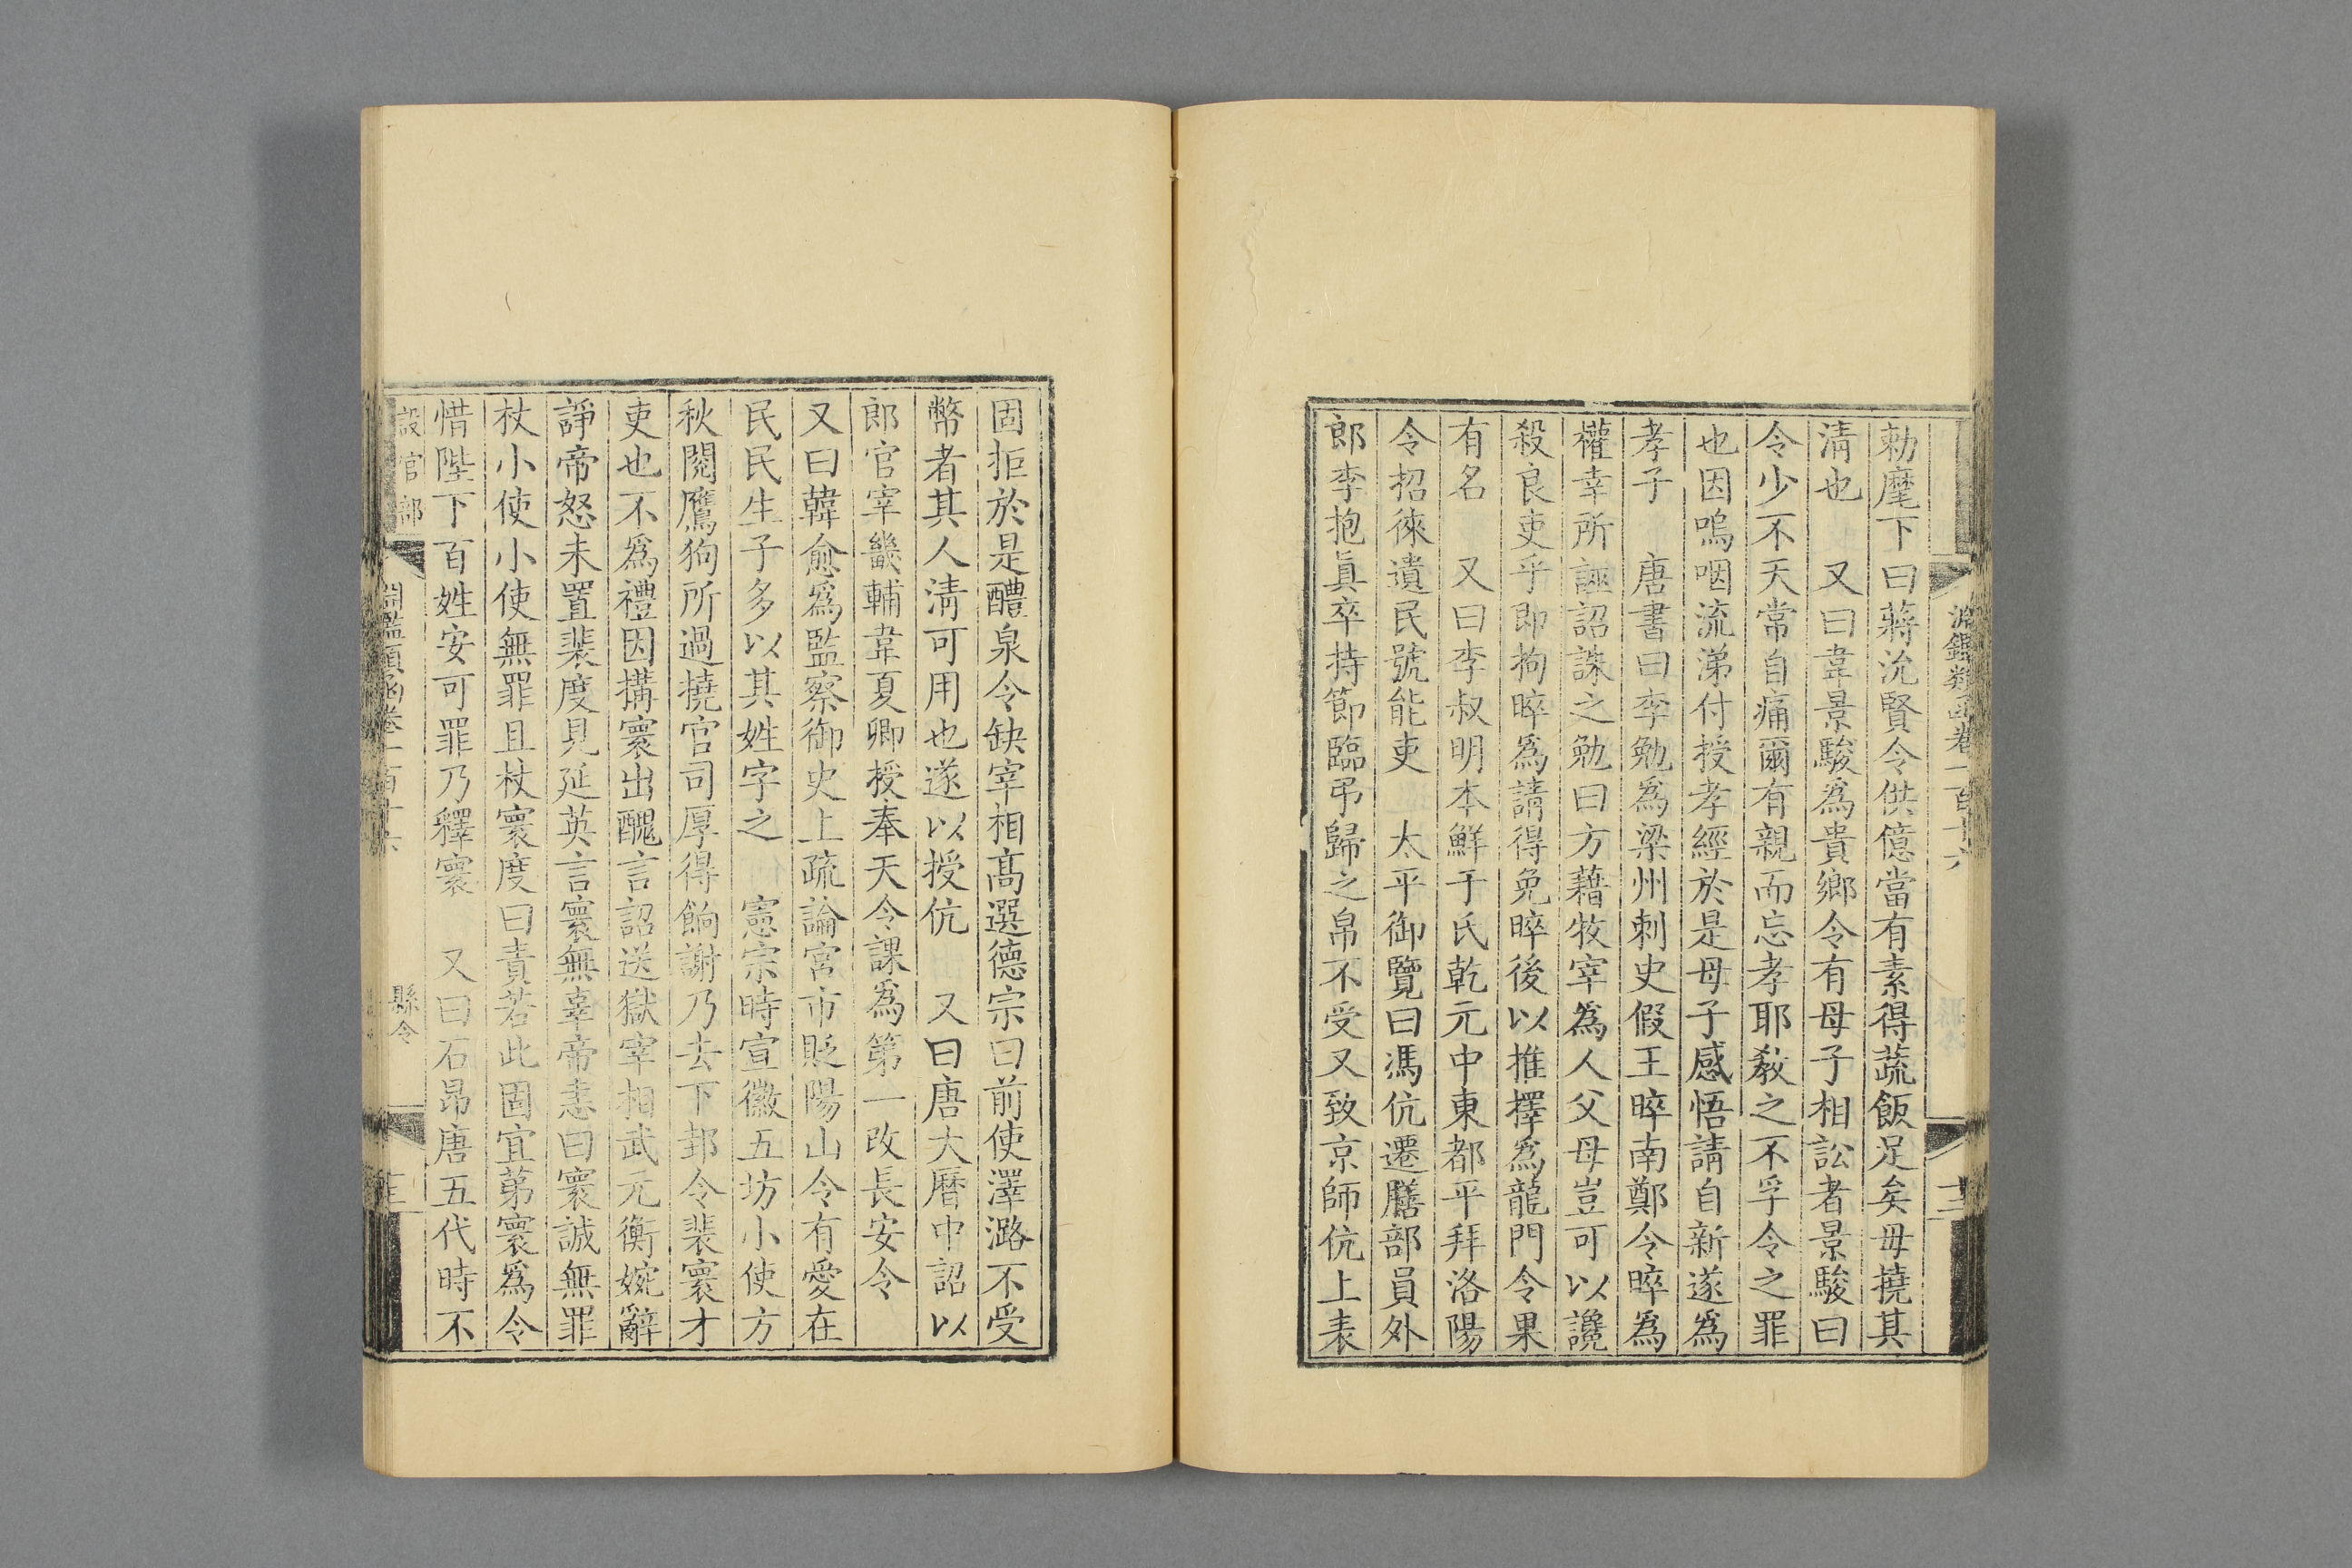 淵鑑類函卷一百十六
勑麾下曰蔣沇賢令供億當有素得蔬飯足矣毋撓其
淸也　又曰韋景駿為貴鄉令有母子相訟者景駿曰
令少不天常自痛爾有親而忘孝耶教之不孚令之罪
也因嗚咽流涕付授孝經於是母子感悟請自新遂爲
孝子　唐書曰李勉爲梁州刺史假王晬南鄭令晬爲
權幸所誣詔誅之勉曰方藉牧宰爲人父母豈可以讒
殺良吏乎卽拘晬爲請得免晬後以推擇爲龍門令果
有名　又曰李叔明本鮮于氏乾元中東都平拜洛陽
令招徠遺民號能吏　太平御覽曰馮伉遷膳部員外
郎李抱眞卒持節臨弔歸之帛不受又致京師伉上表
固拒於是醴泉令缺宰相高選德宗曰前使澤潞不受
幣者其人淸可用也遂以授伉　又曰唐大曆中詔以
郎官宰畿輔韋夏卿授奉天令課爲第一改長安令
又曰韓愈爲監察御史上疏論宮市貶陽山令有愛在
民民生子多以其姓字之　憲宗時宣徽五坊小使方
秋閱鷹狗所過撓官司厚得餉謝乃去下邽令裴寰才
吏也不爲禮因搆寰出醜言詔送獄宰相武元衡婉辭
諍帝怒未置裴度見延英言寰無辜帝恚曰寰誠無罪
杖小使小使無罪且杖寰度曰責若此固宜第寰爲令
惜陛下百姓安可罪乃釋寰　又曰石昂唐五代時不
設官部　淵鑑類函卷一百十六　縣令